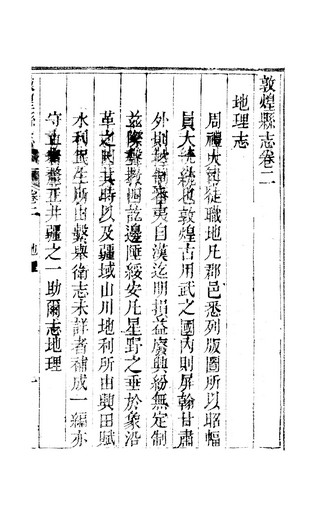 敦煌縣志卷二
地理志
周禮大司徒職地凡郡邑悉列版圖所以昭幅
員大一統也敦煌古用武之國內則屏翰甘肅
外則 夷自漢迄明損益廢興紛無定制
茲 聲教四訖邊陲綏安凡星野之垂於象沿
革之因其時以及疆域山川地利所由興田賦
水利民生所由繫舉衛志未詳者補成一編亦
守 正井疆之一助爾志地理
敦煌縣志 卷二 地理 一